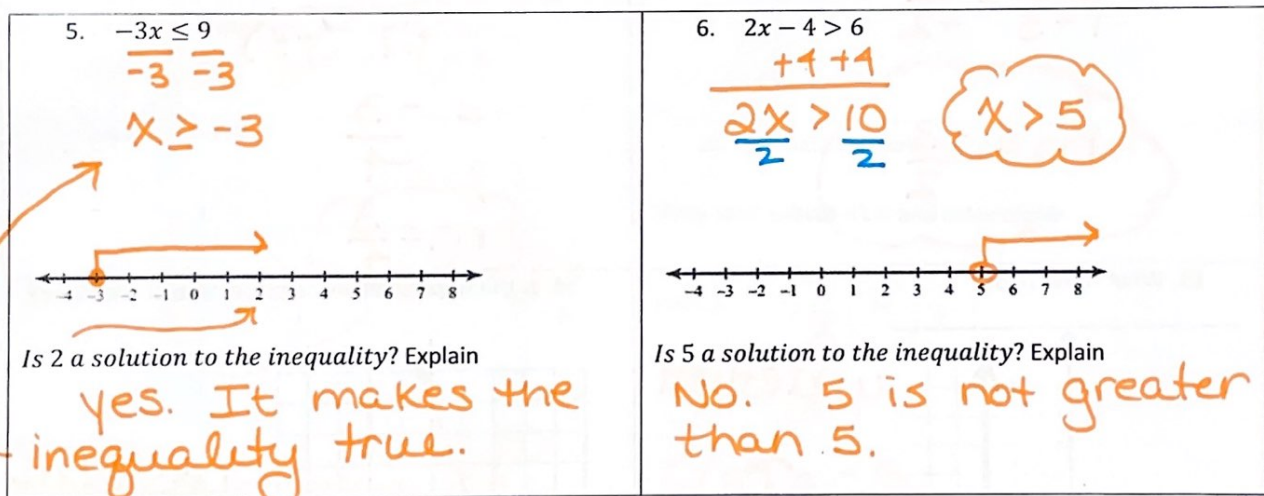 5. −3x ≤ 9
-3 -3
x ≥ -3
-4 -3 -2 -1 0 1 2 3 4 5 6 7 8
Is 2 a solution to the inequality? Explain
yes. It makes the
inequality true.
6. 2x − 4 > 6
+4 +4
2x > 10
2 2
x > 5
-4 -3 -2 -1 0 1 2 3 4 5 6 7 8
Is 5 a solution to the inequality? Explain
No. 5 is not greater
than 5.